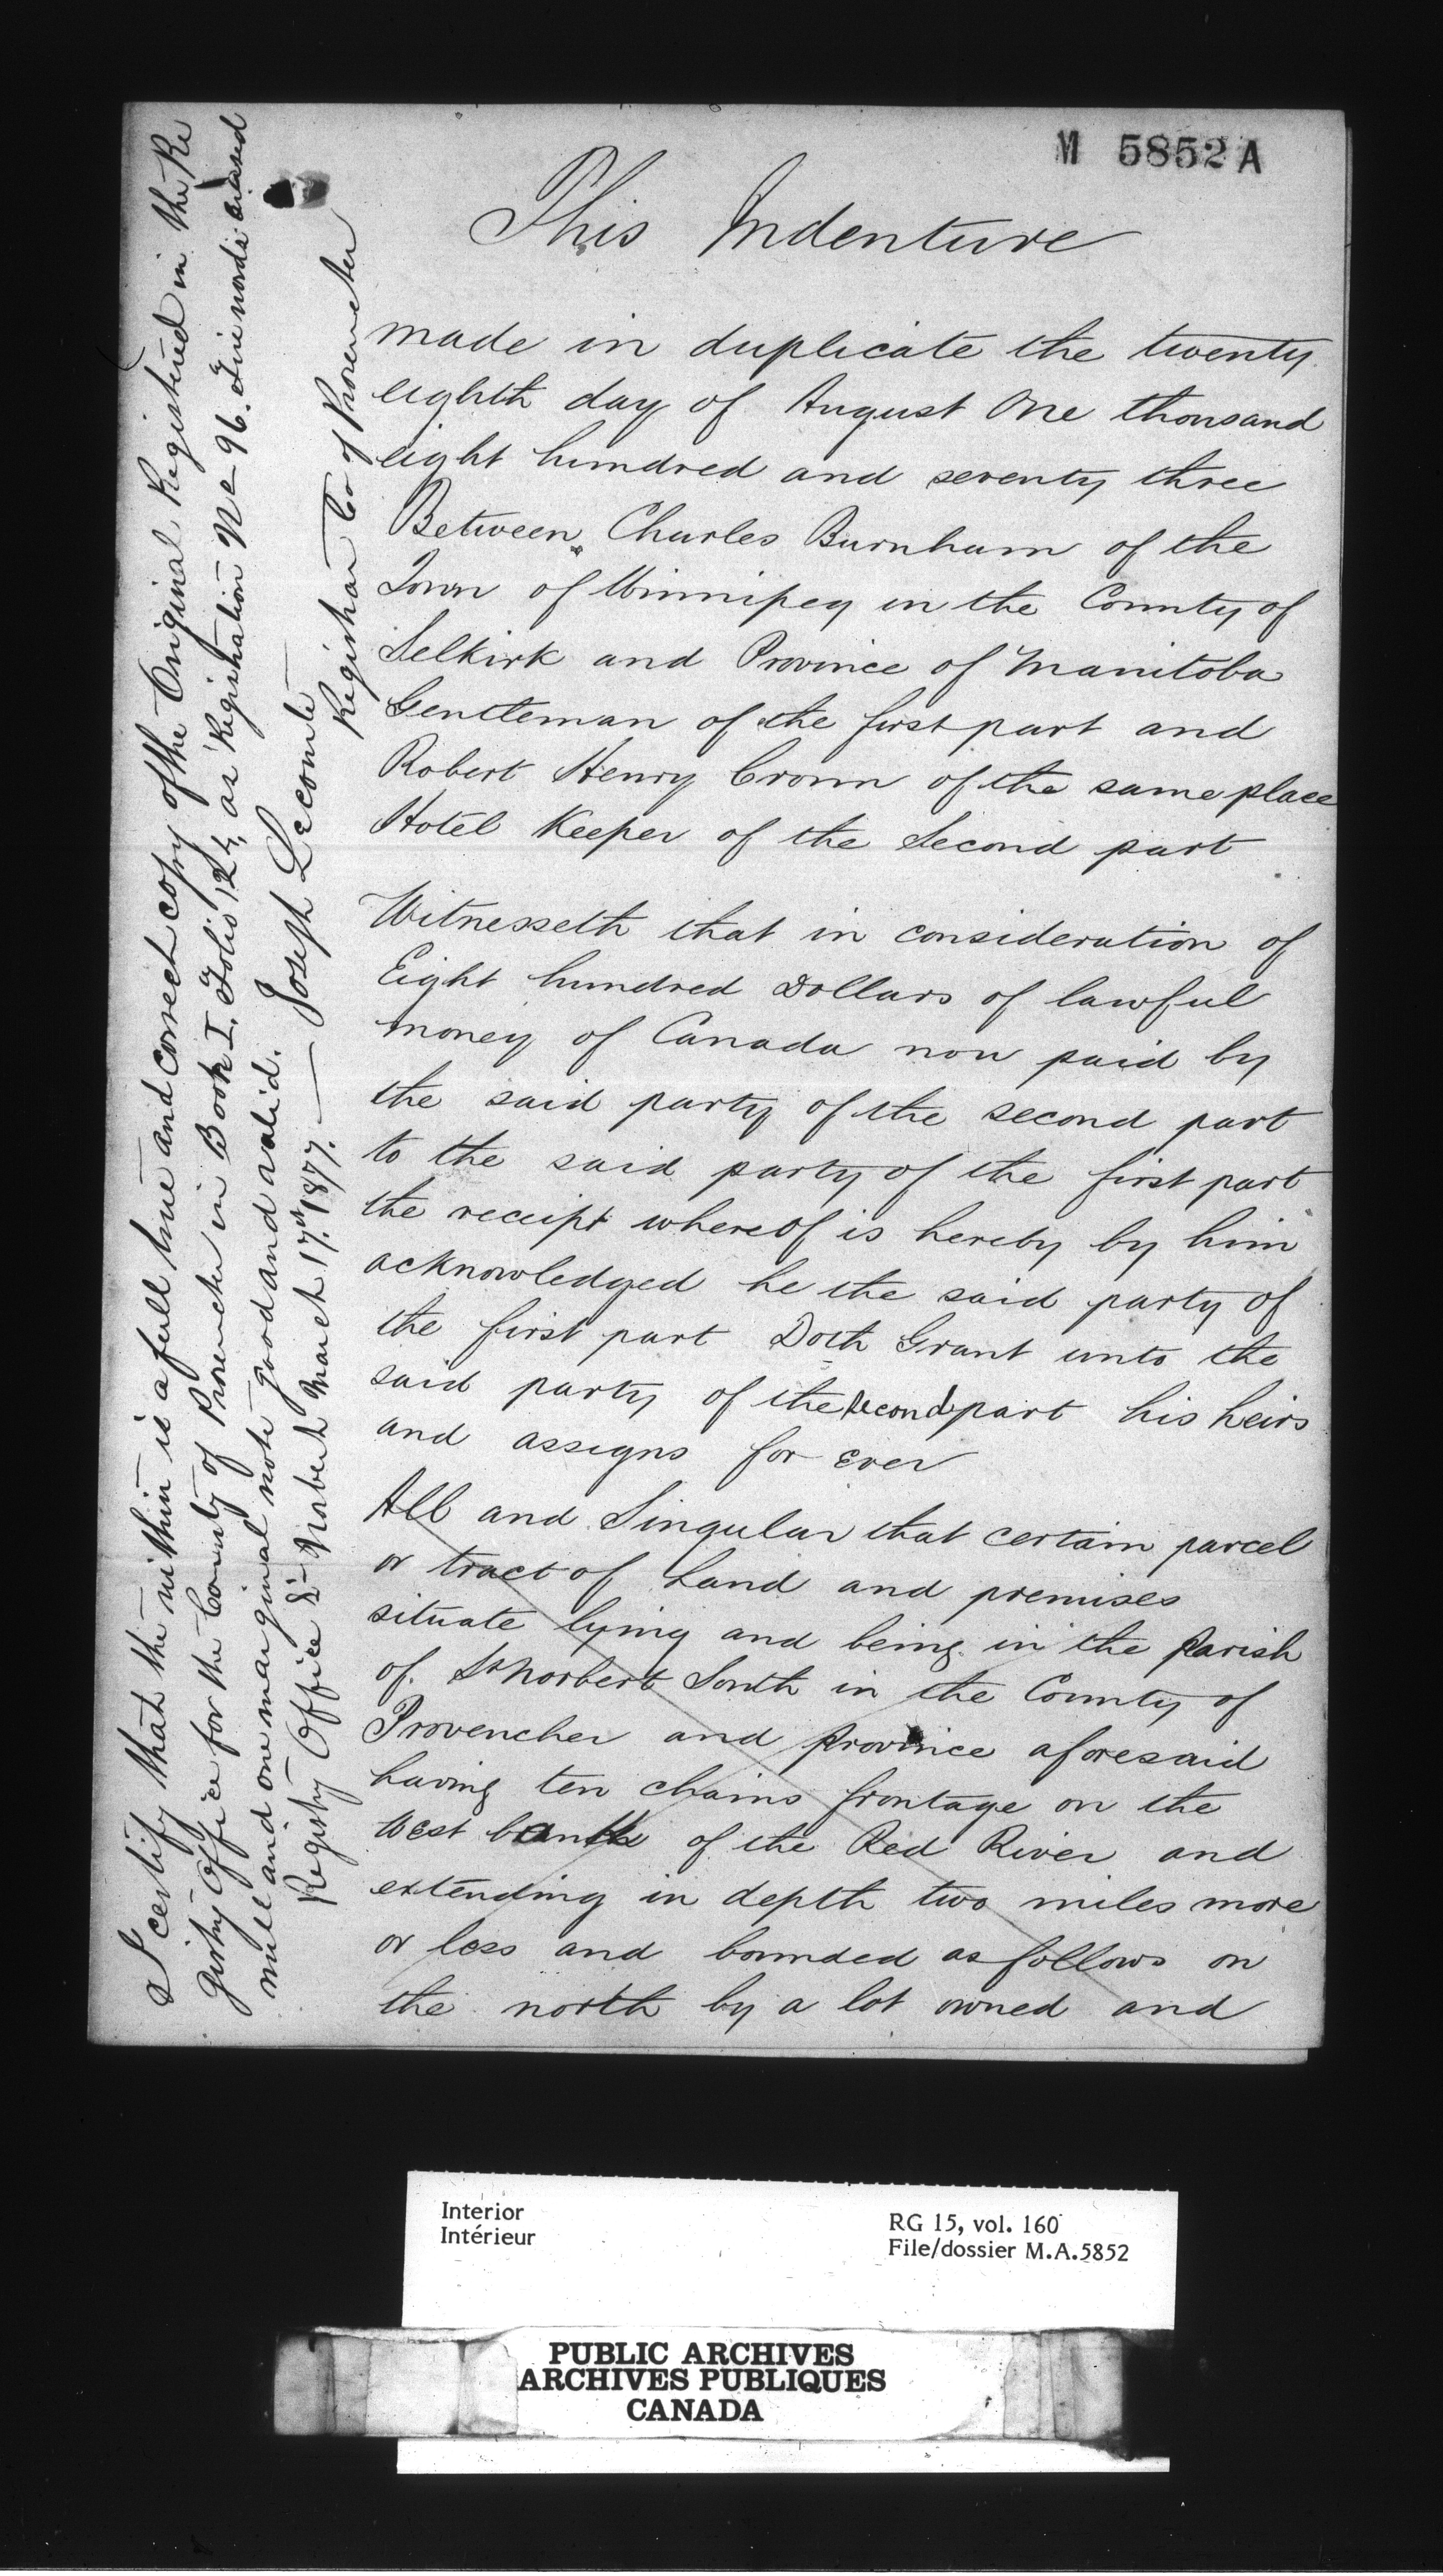 M 5852 A
This Indenture
made in duplicate the twenty
eighth day of August One thousand
eight hundred and seventy three
Between Charles Burnham of the
Town of Winnipeg in the County of
Selkirk and Province of Manitoba
Gentleman of the first part and
Robert Henry Cronn of the same place
Hotel Keeper of the Second part
Witnesseth that in consideration of
Eight hundred Dollars of lawful
money of Canada now paid by
the said party of the second part
to the said party of the first part
the receipt whereof is hereby by him
acknowledged he the said party of
the first part Doth Grant unto the
said party of the second part his heirs
and assigns for ever
All and Singular that certain parcel
or tract of Land and premises
situate lying and being in the Parish
of St Norbert South in the County of
Provencher and province aforesaid
having ten chains frontage on the
West bank of the Red River and
extending in depth two miles more
or less and bounded as follows on
the north by a lot owned and
I certify that the within is a full true and correct copy of the Original Registered in the Re
gistry Office for the County of Provencher in Book I. Folio 124, as Registration No 96. Five words erased
null and one marginal note good and valid.
Registry Office St Norbert March 17th 1877. — Joseph Lecomte —
Registrar Co of Provencher
Interior
Intérieur
RG 15, vol. 160
File/dossier M.A.5852
PUBLIC ARCHIVES
ARCHIVES PUBLIQUES
CANADA